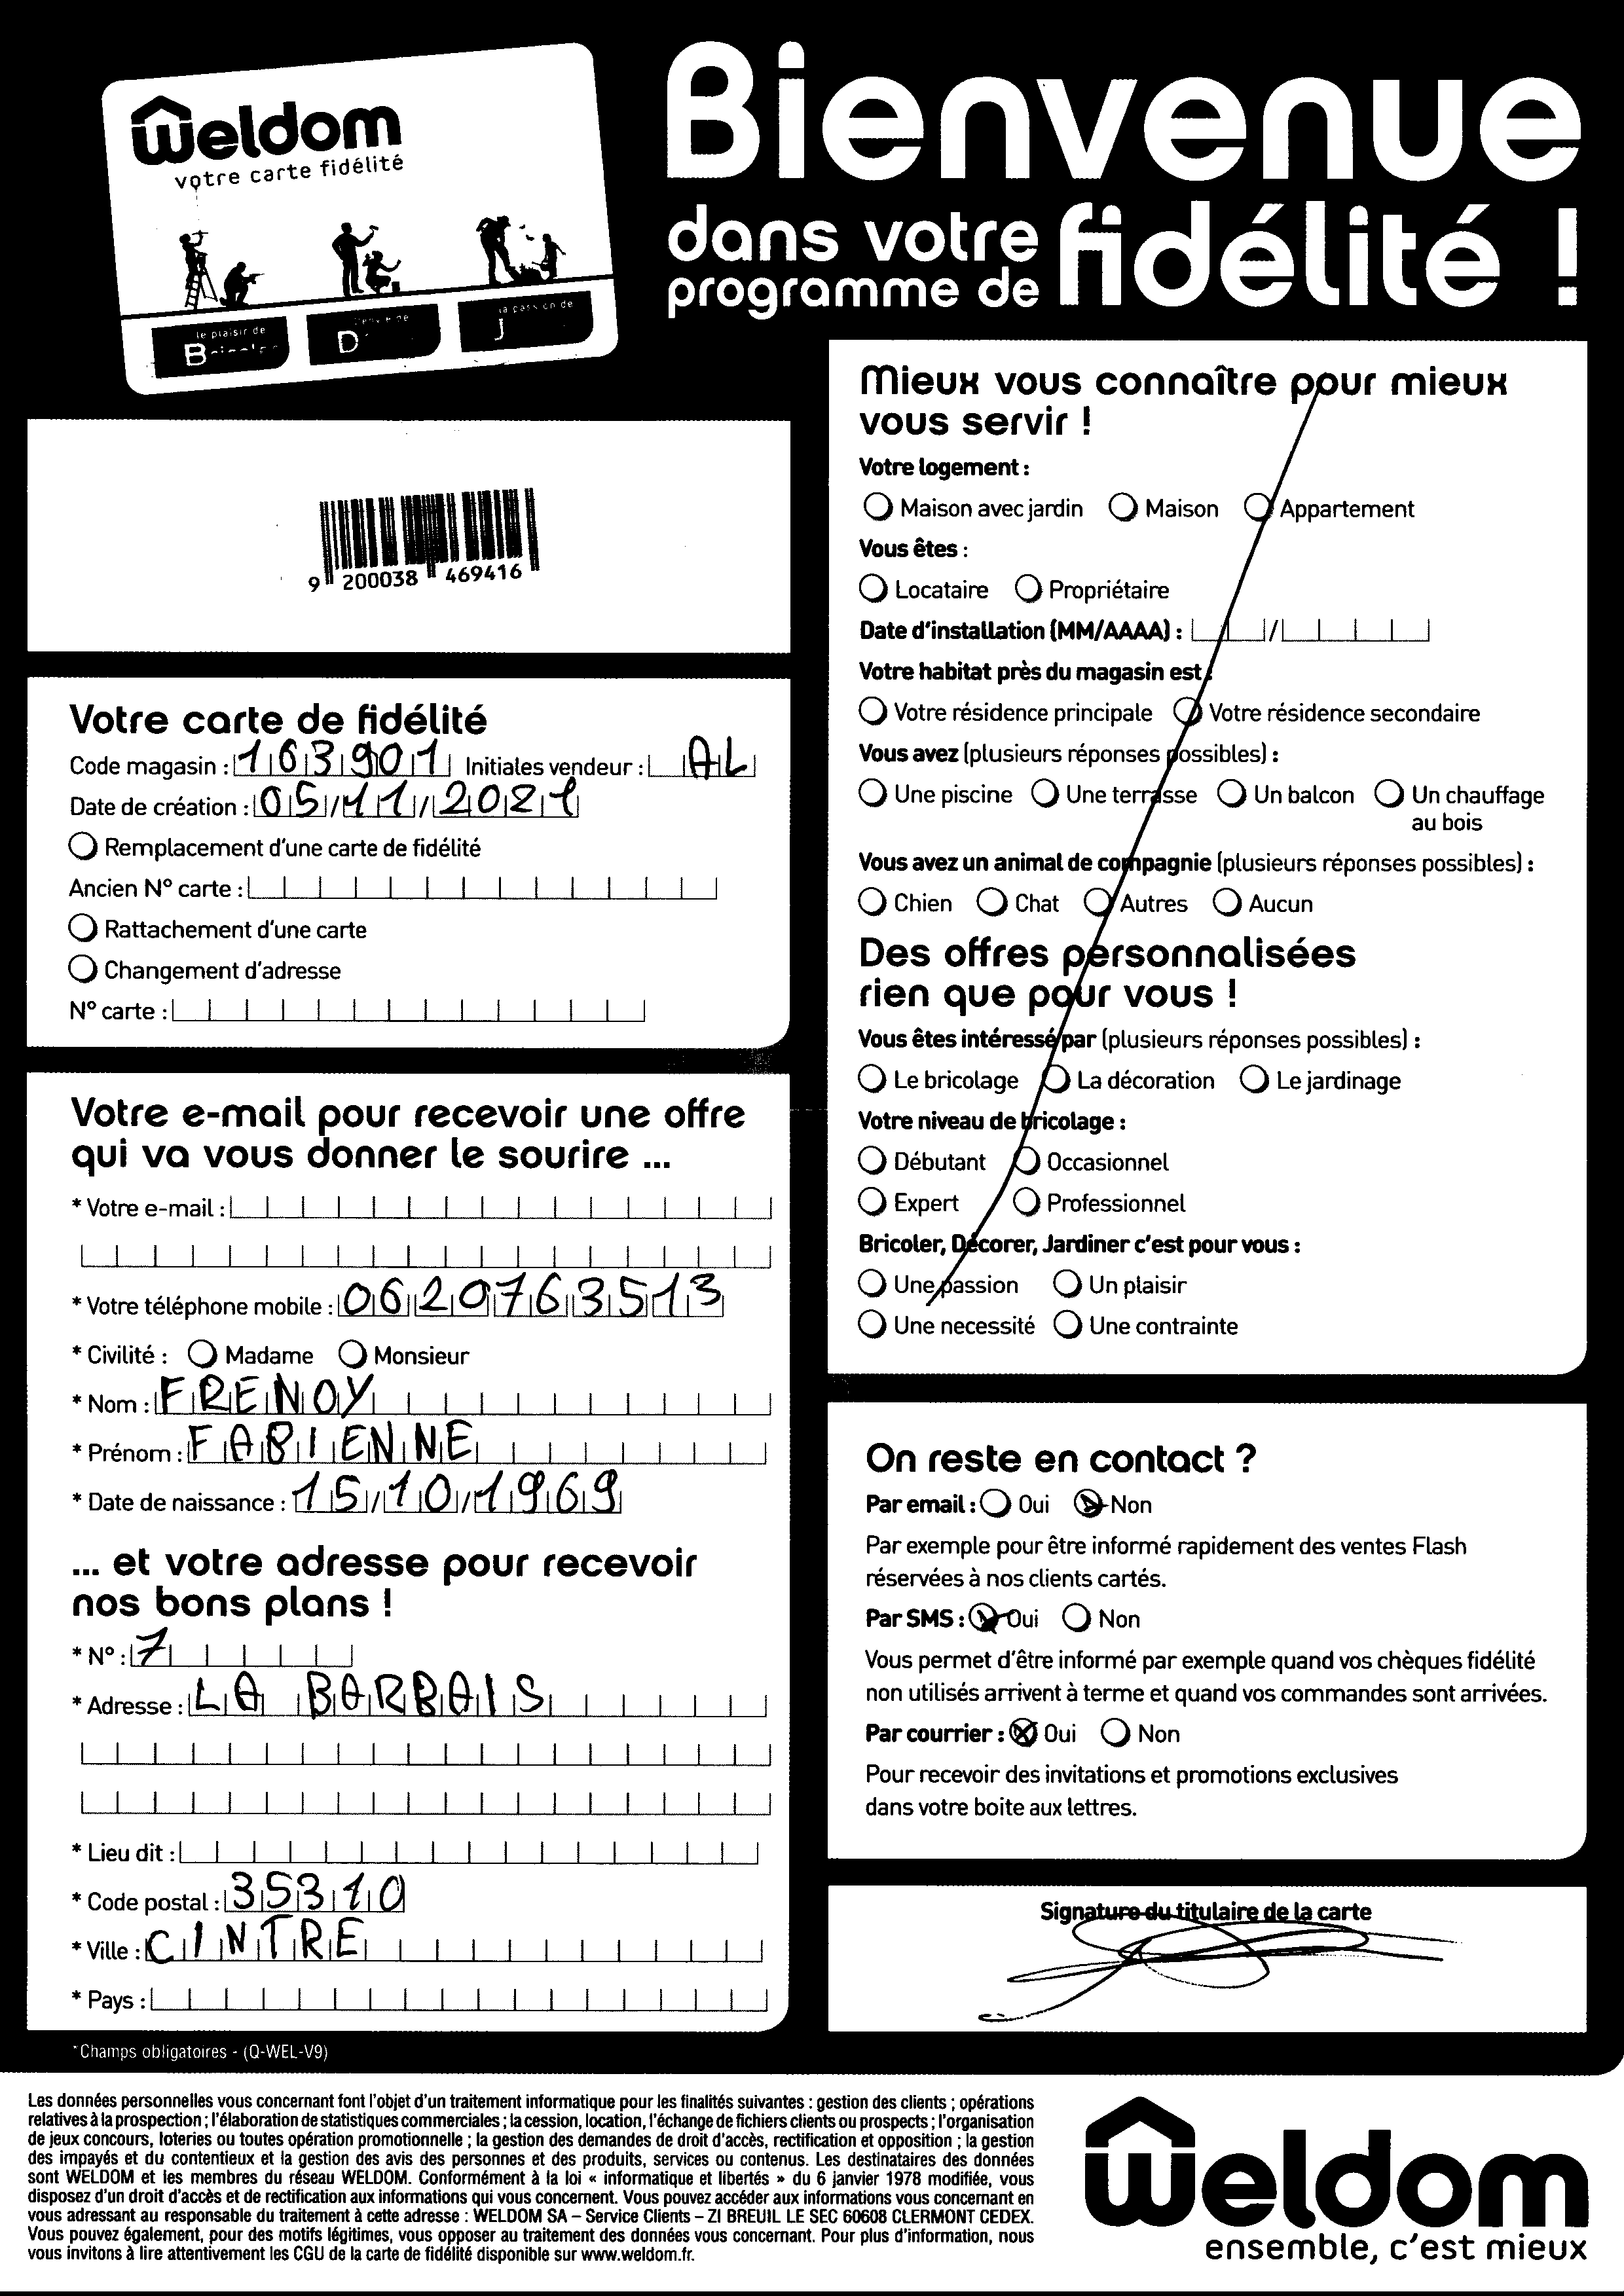 Weldom
votre carte fidélité
le plaisir de
la passion de
Bienvenue
dans votre
programme de fidélité !
9 200038 469416
Votre carte de fidélité
Code magasin : 163901 Initiales vendeur : AL
Date de création : 05/11/2021
Remplacement d'une carte de fidélité
Ancien N° carte :
Rattachement d'une carte
Changement d'adresse
N° carte :
Votre e-mail pour recevoir une offre
qui va vous donner le sourire ...
* Votre e-mail :
* Votre téléphone mobile : 0620763513
* Civilité : Madame Monsieur
* Nom : FRENOY
* Prénom : FABIENNE
* Date de naissance : 15/10/1969
... et votre adresse pour recevoir
nos bons plans !
* N° : 7
* Adresse : LA BARBAIS
* Lieu dit :
* Code postal : 35310
* Ville : CINTRE
* Pays :
*Champs obligatoires - (Q-WEL-V9)
Mieux vous connaître pour mieux
vous servir !
Votre logement :
Maison avec jardin Maison Appartement
Vous êtes :
Locataire Propriétaire
Date d'installation (MM/AAAA) : /
Votre habitat près du magasin est :
Votre résidence principale Votre résidence secondaire
Vous avez (plusieurs réponses possibles) :
Une piscine Une terrasse Un balcon Un chauffage
au bois
Vous avez un animal de compagnie (plusieurs réponses possibles) :
Chien Chat Autres Aucun
Des offres personnalisées
rien que pour vous !
Vous êtes intéressé par (plusieurs réponses possibles) :
Le bricolage La décoration Le jardinage
Votre niveau de bricolage :
Débutant Occasionnel
Expert Professionnel
Bricoler, Décorer, Jardiner c'est pour vous :
Une passion Un plaisir
Une necessité Une contrainte
On reste en contact ?
Par email : Oui Non
Par exemple pour être informé rapidement des ventes Flash
réservées à nos clients cartés.
Par SMS : Oui Non
Vous permet d'être informé par exemple quand vos chèques fidélité
non utilisés arrivent à terme et quand vos commandes sont arrivées.
Par courrier : Oui Non
Pour recevoir des invitations et promotions exclusives
dans votre boite aux lettres.
Signature du titulaire de la carte
Les données personnelles vous concernant font l'objet d'un traitement informatique pour les finalités suivantes : gestion des clients ; opérations
relatives à la prospection ; l'élaboration de statistiques commerciales ; la cession, location, l'échange de fichiers clients ou prospects ; l'organisation
de jeux concours, loteries ou toutes opération promotionnelle ; la gestion des demandes de droit d'accès, rectification et opposition ; la gestion
des impayés et du contentieux et la gestion des avis des personnes et des produits, services ou contenus. Les destinataires des données
sont WELDOM et les membres du réseau WELDOM. Conformément à la loi « informatique et libertés » du 6 janvier 1978 modifiée, vous
disposez d'un droit d'accès et de rectification aux informations qui vous concernent. Vous pouvez accéder aux informations vous concernant en
vous adressant au responsable du traitement à cette adresse : WELDOM SA – Service Clients – ZI BREUIL LE SEC 60608 CLERMONT CEDEX.
Vous pouvez également, pour des motifs légitimes, vous opposer au traitement des données vous concernant. Pour plus d'information, nous
vous invitons à lire attentivement les CGU de la carte de fidélité disponible sur www.weldom.fr.
Weldom
ensemble, c'est mieux